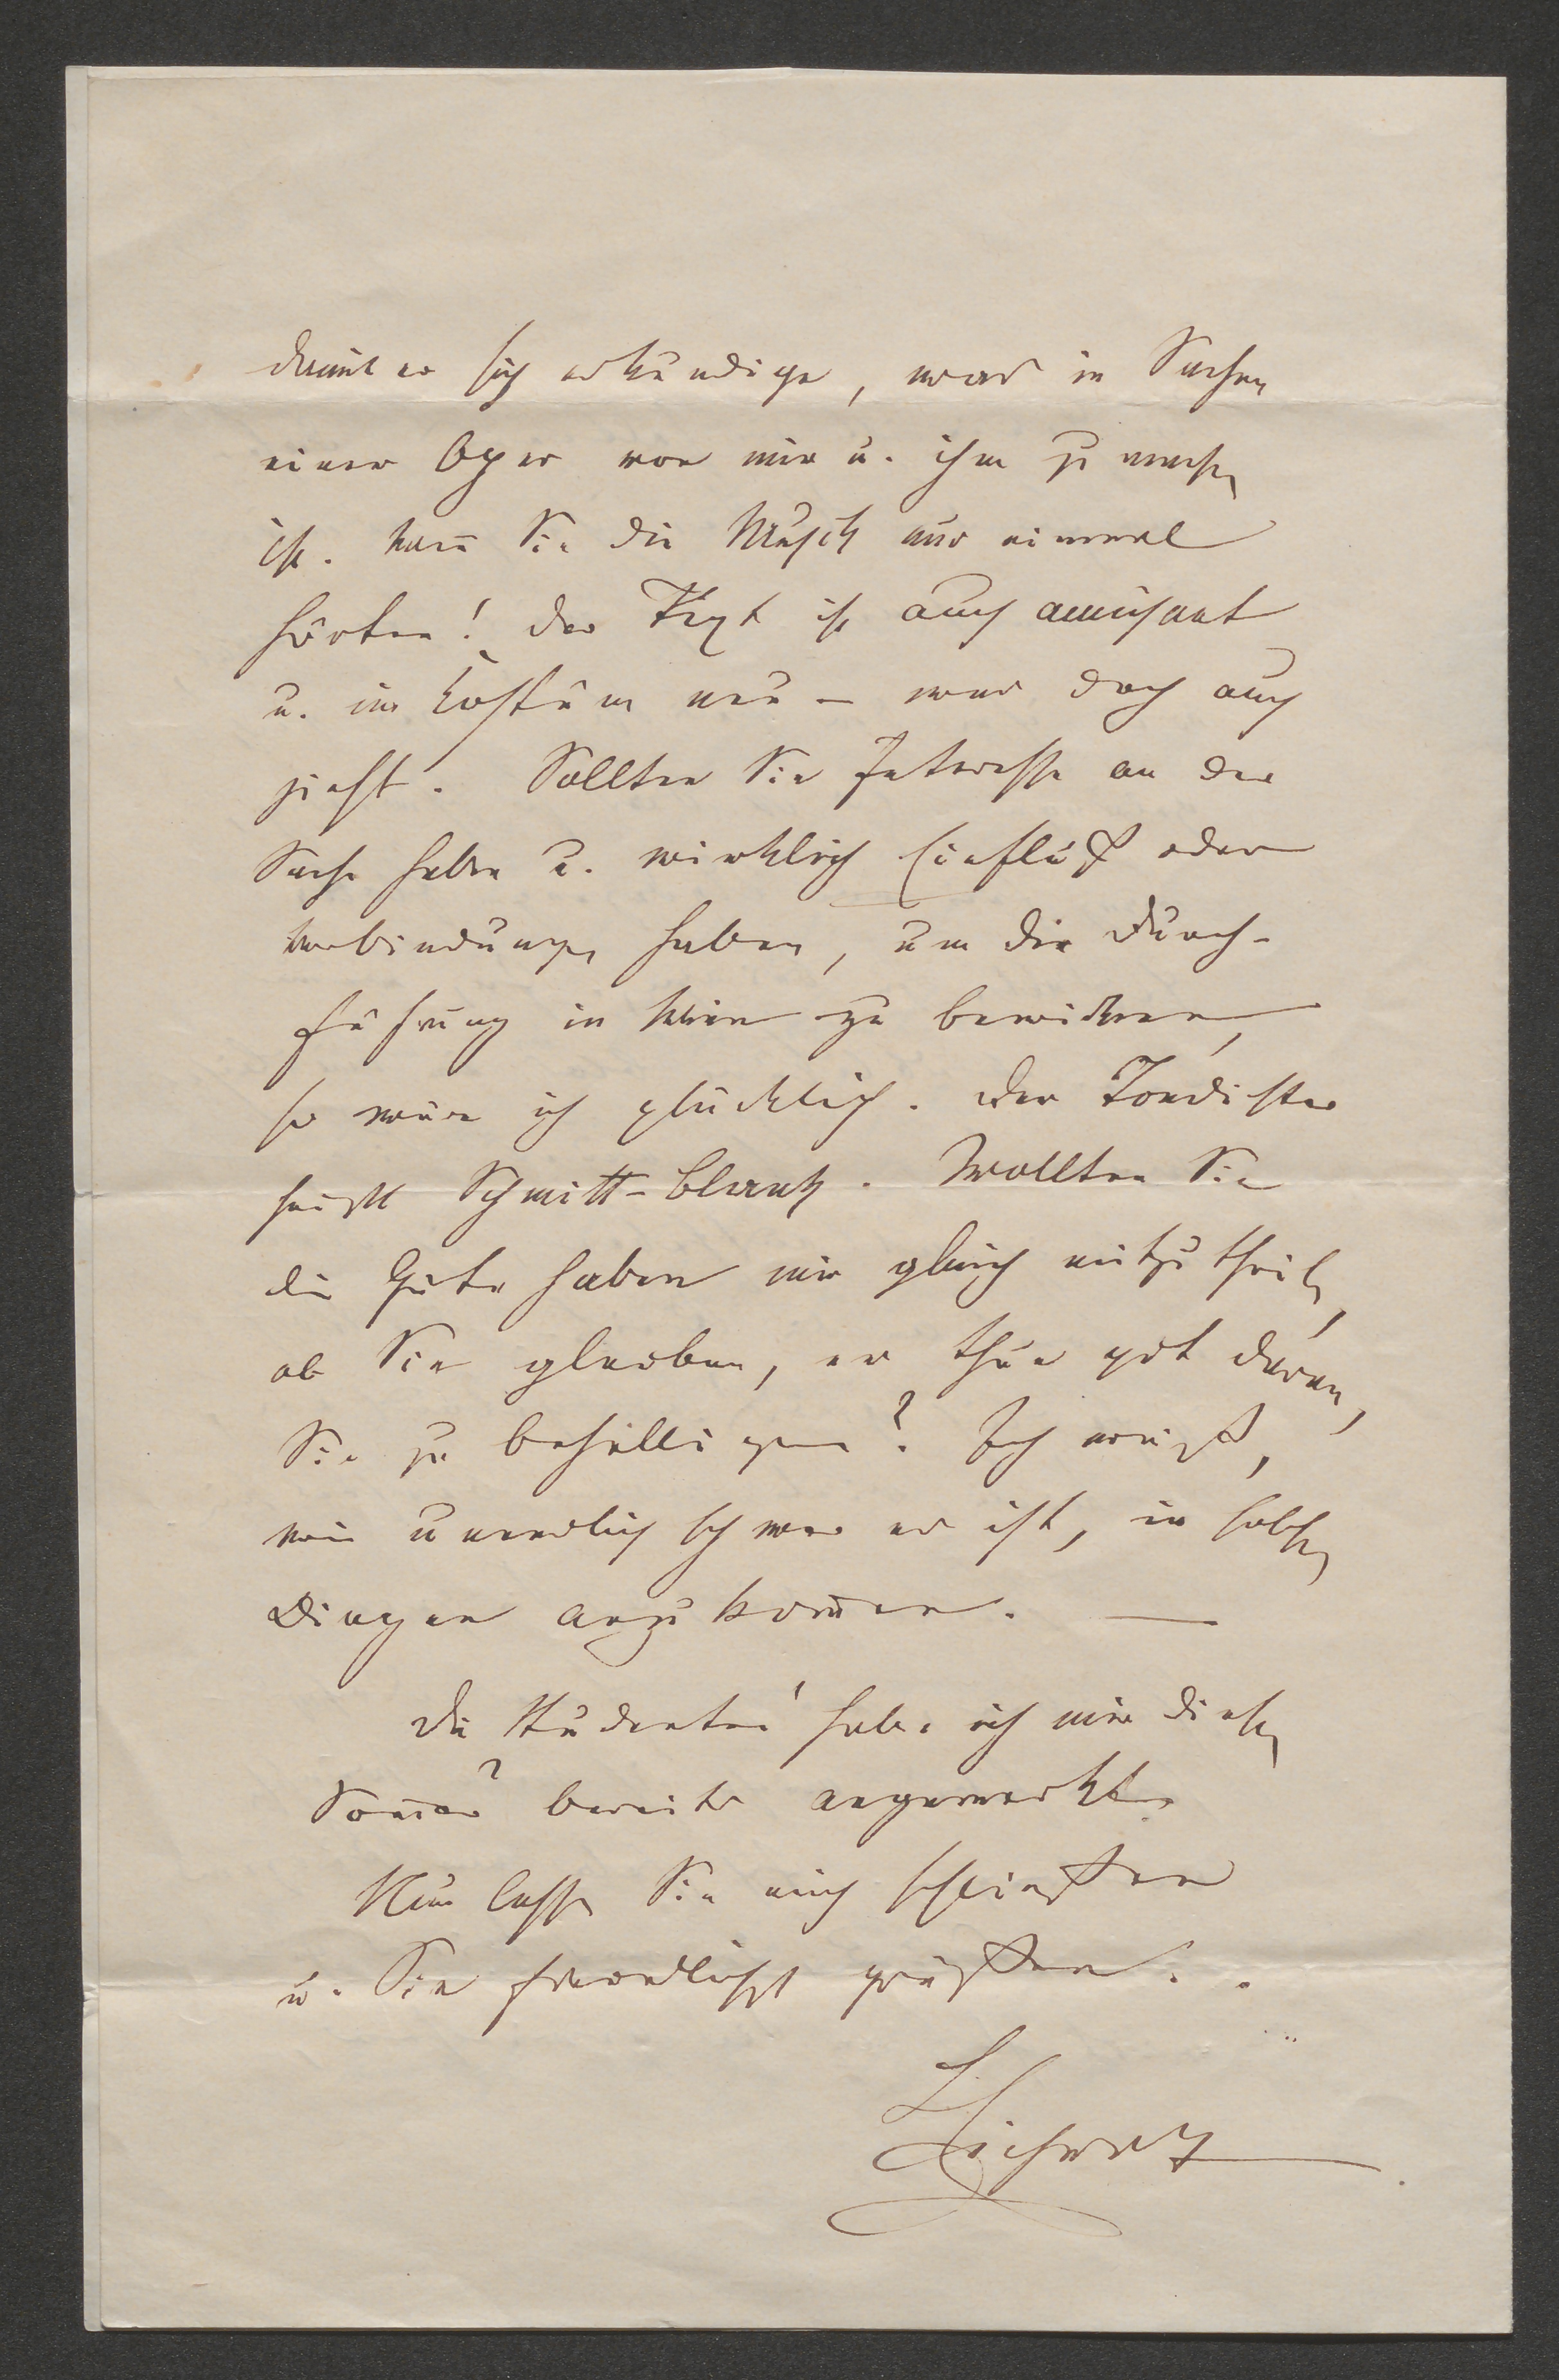 damit er sich erkundige, was in Sachen
einer Oper von mir u. ihm zu machen
ist. Wenn Sie die Musik nur einmal
hörten! Der Text ist auch amüsant
u. im Kostüm neu – was doch auch
zieht. Sollten Sie Interesse an der
Sache haben u. wirklich Einfluß oder
Verbindungen haben, um die Durch-
führung in Wien zu bewirken,
so wäre ich glücklich. Der Tondichter
heißt Schmitt-Blank. Wollten Sie
die Güte haben mir gleich mitzutheilen,
ob Sie glauben, er thue gut daran,
Sie zu behelligen? Ich weiß,
wie unendlich schwer es ist, in solchen
Dingen anzukommen. —
Die Studenten habe ich mir diesen
Sommer bereits angemerkt.
Nun lassen Sie mich schließen
u. Sie freundlichst grüßen.
L. Eichrodt